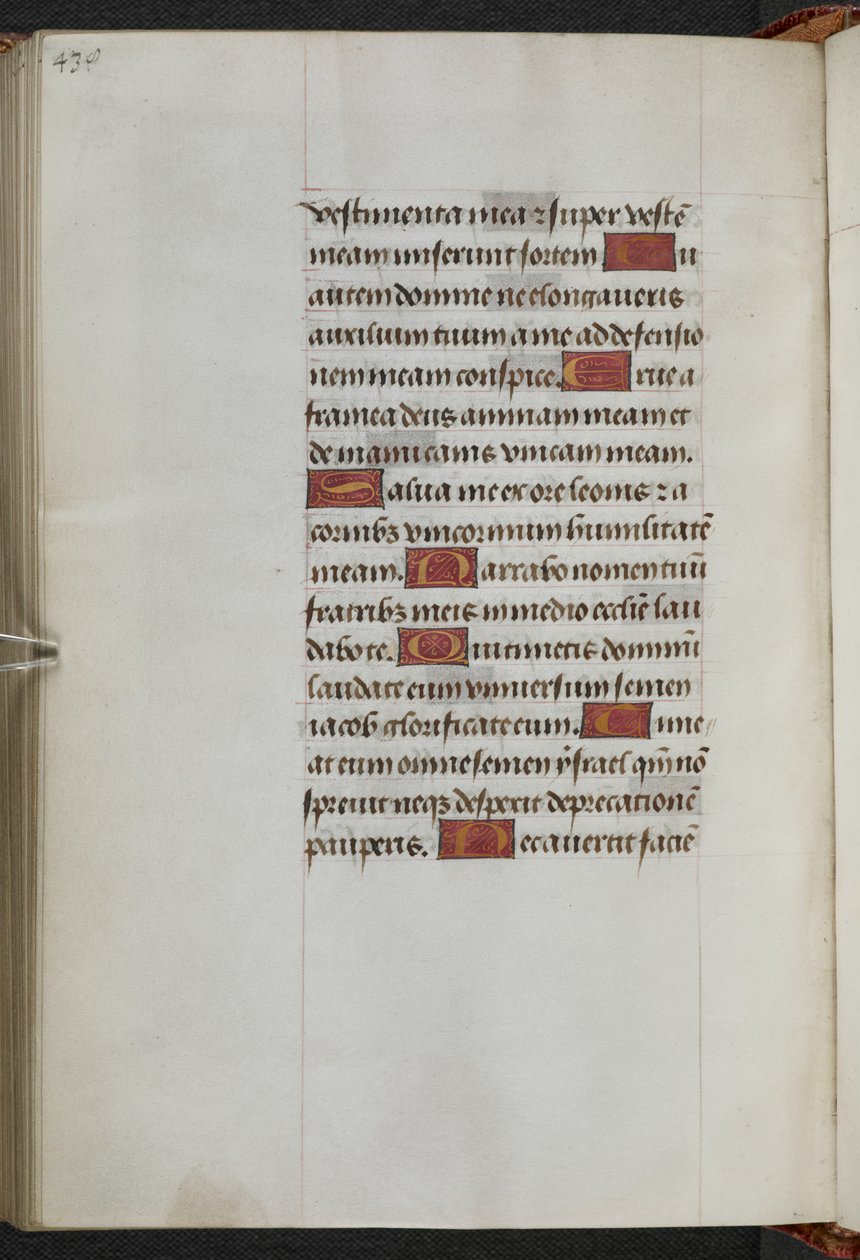 438
vestimenta mea ⁊ super vestē
meam miserunt sortem Tu
autem domine ne elongaueris
auxilium tuum a me ad defensio
nem meam conspice. Erue a
framea deus animam meam et
de manu canis vnicam meam.
Salua me ex ore leonis ⁊ a
cornibꝫ vnicornium humilitatē
meam. Narrabo nomen tuū
fratribꝫ meis in medio ecclīe lau
dabo te. Qui timetis dominū
laudate eum vniuersum semen
iacob glorificate eum. Time
at eum omne semen ẏsrael qm̄ nō
spreuit neqꝫ despexit deprecationē
pauperis. Nec auertit faciē